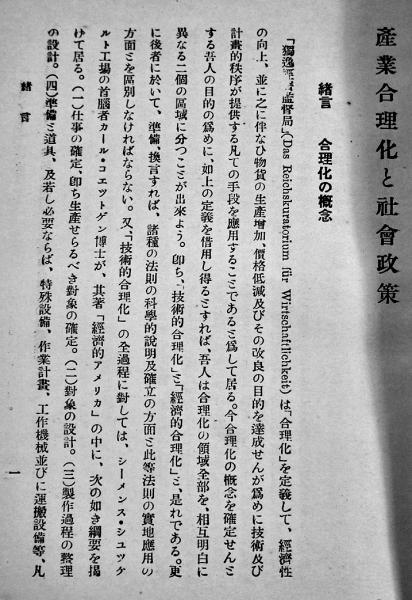 產業合理化と社會政策
緒言　合理化の概念
「獨逸經濟監督局」(Das Reichskuratorium für Wirtschaftlichkeit)は「合理化」を定義して、經濟性
の向上、並に之に伴なひ物貨の生產增加、價格低減及びその改良の目的を達成せんが爲めに技術及び
計畫的秩序が提供する凡ての手段を應用することであると爲して居る。今合理化の概念を確定せんと
する吾人の目的の爲めに、如上の定義を借用し得るとすれば、吾人は合理化の領域全部を、相互明白に
異なる二個の區域に分つことが出來よう。卽ち、「技術的合理化」と「經濟的合理化」と、是れである。更
に後者に於いて、準備、換言すれば、諸種の法則の科學的說明及確立の方面と此等法則の實地應用の
方面とを區別しなければならない。又、「技術的合理化」の全過程に對しては、シーメンス・シユツケ
ルト工場の首腦者カール・コエツトゲン博士が、其著「經濟的アメリカ」の中に、次の如き綱要を揭
けて居る。(一)仕事の確定、卽ち生產せらるべき對象の確定。(二)對象の設計。(三)製作過程の整理
の設計。(四)準備と道具、及若し必要ならば、特殊設備、作業計畫、工作機械並びに運搬設備等、凡
緒言
一